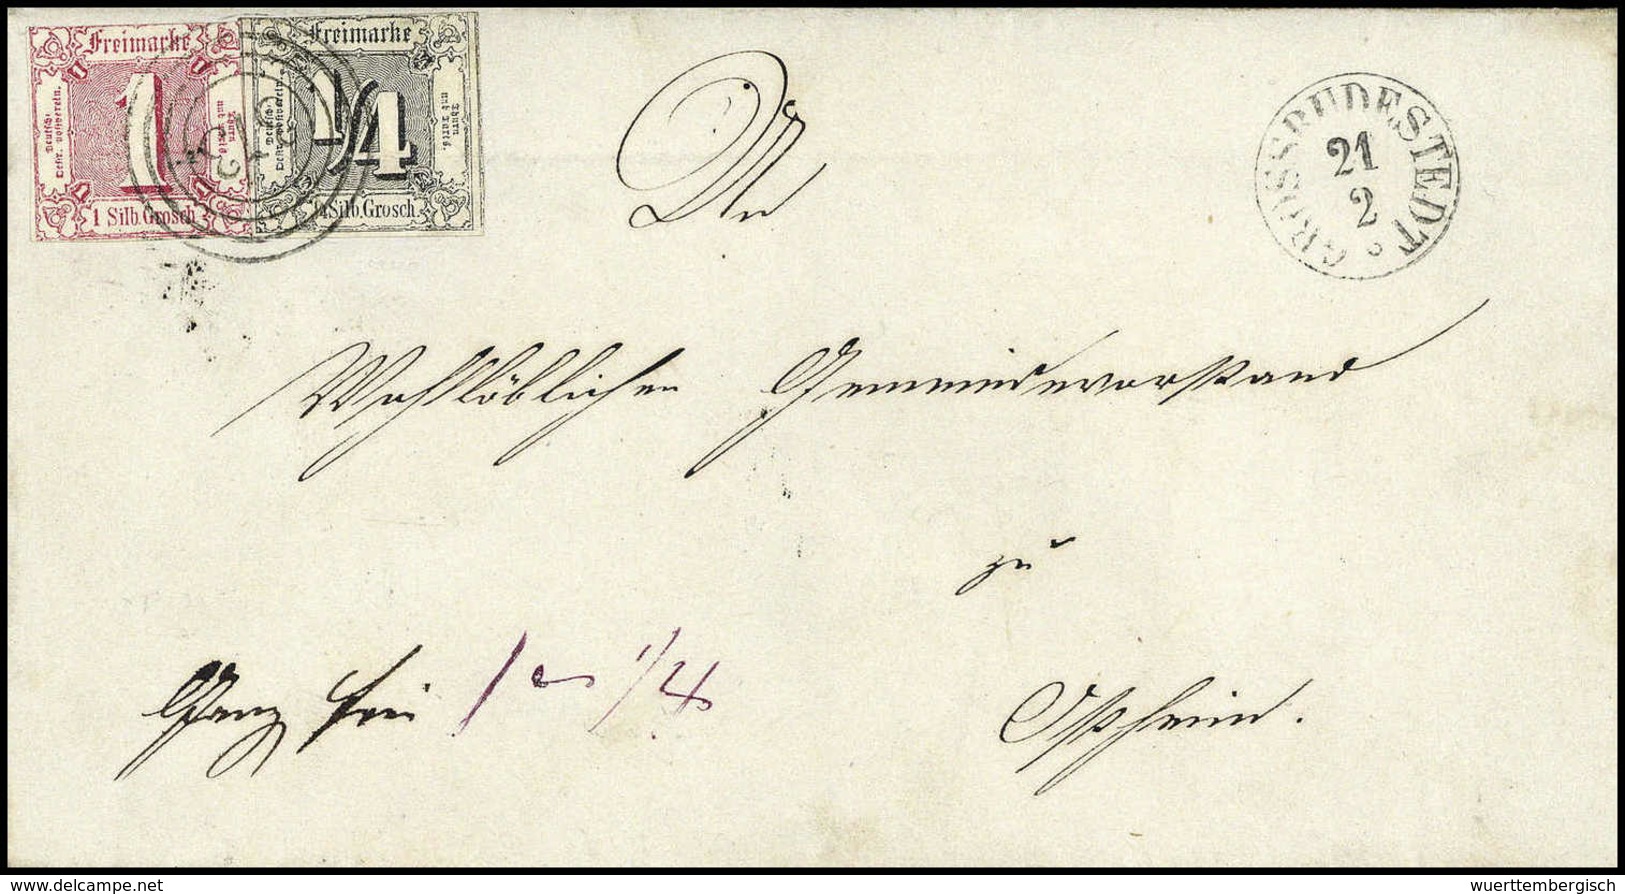 Freimarke
1 Silb. Grosch
Deutsch-
Oestr. Postverein.
Thurn
und Taxis
Freimarke
1/4
1/4 Silb. Grosch.
Deutsch-
Oestr. Postverein.
Thurn
und Taxis.
1
GROSSRUDESTEDT
21
2
An
Wohllöblichen Gemeindevorstand
zu
Ganz frei 1 1/4
Ostheim.
© Delcampe.net
wuerttembergisch